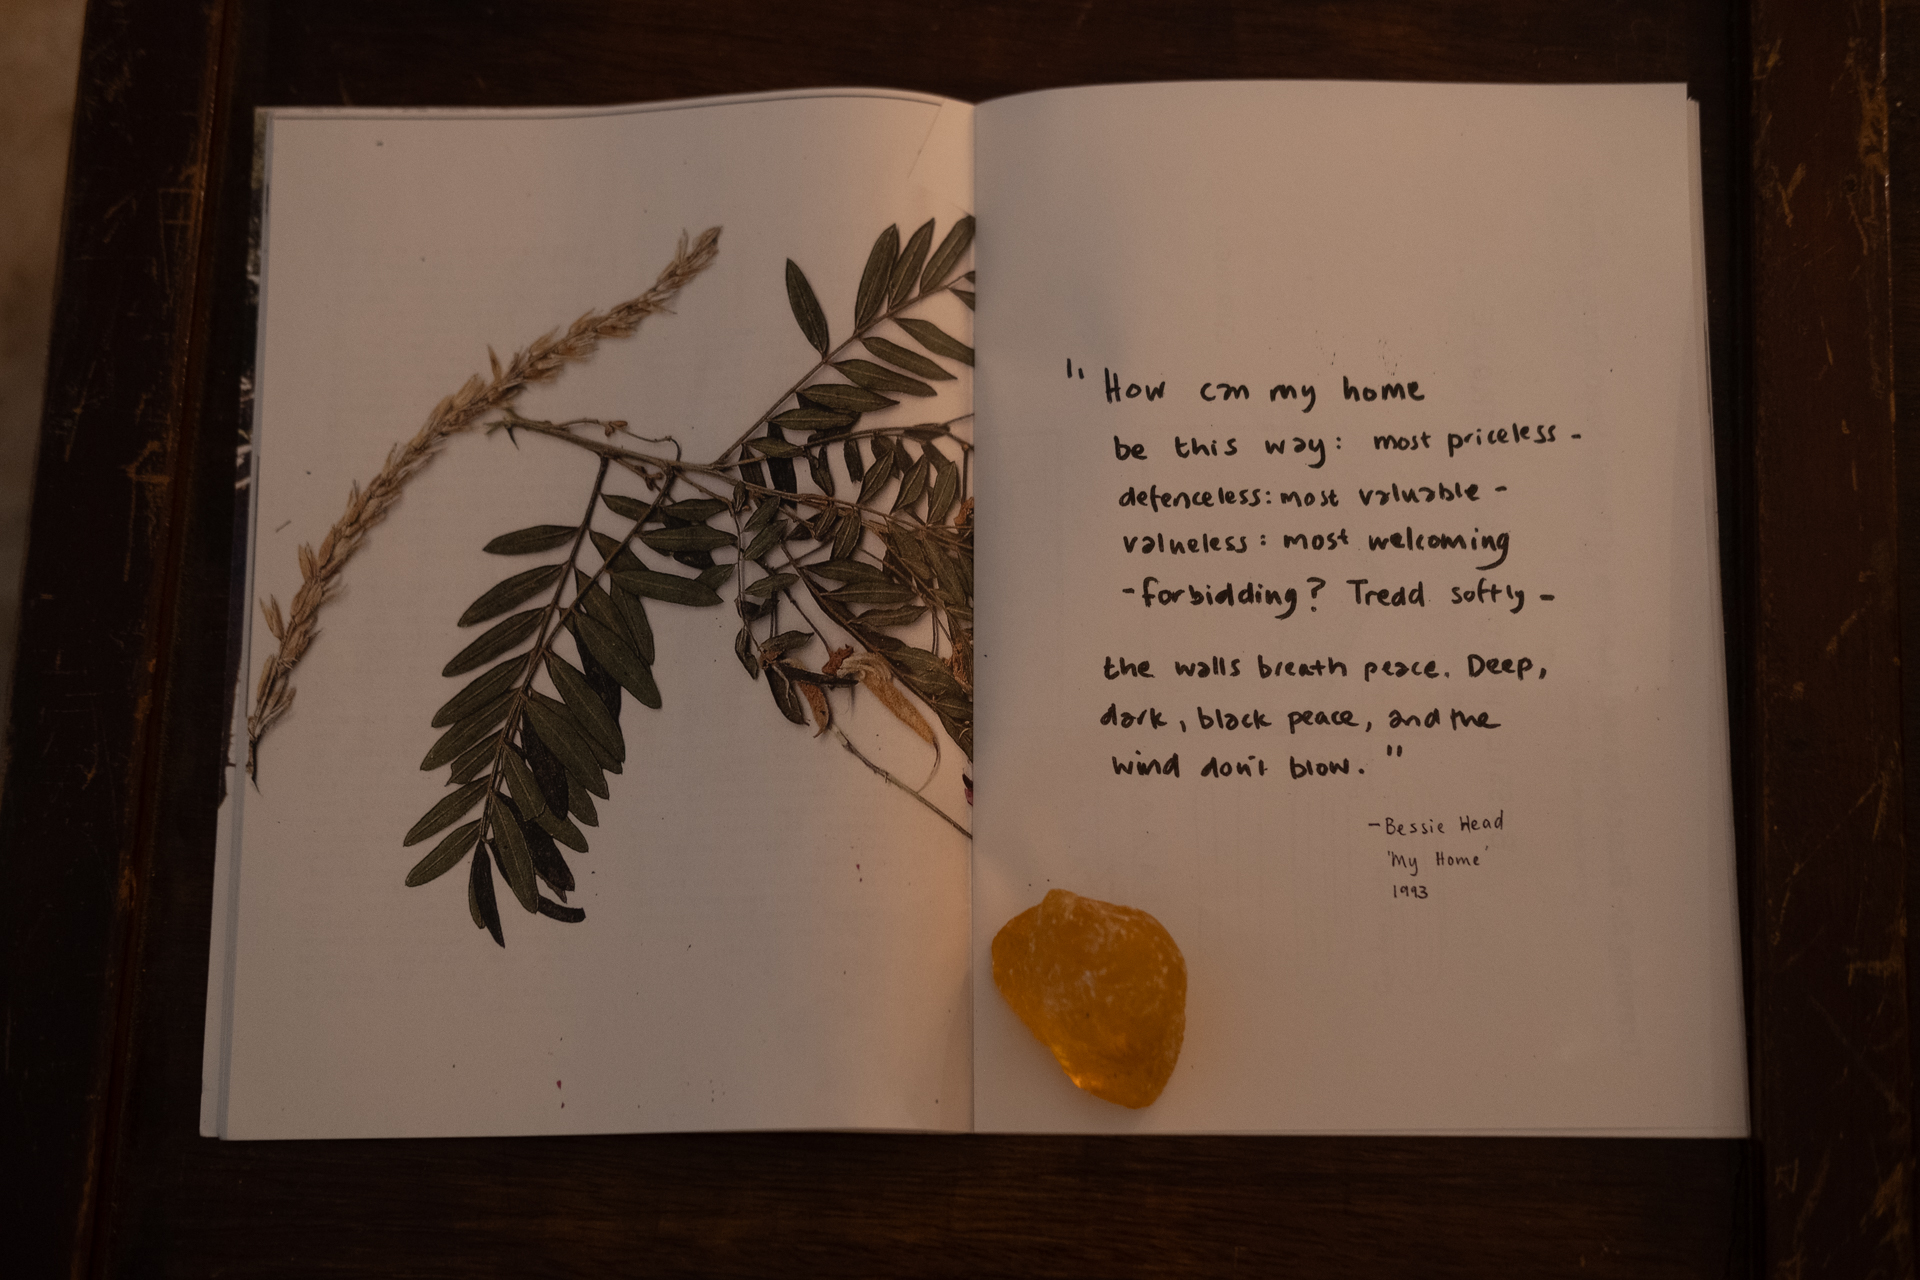 "How can my home
be this way: most priceless -
defenceless: most valuable -
valueless: most welcoming
- forbidding? Tread softly -
the walls breath peace. Deep,
dark, black peace, and the
wind don't blow."
- Bessie Head
'My Home'
1993